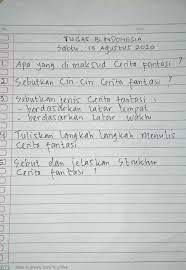 TUGAS B. INDONESIA
Sabtu, 15 Agustus 2020
1. Apa yang dimaksud Cerita fantasi ?
2. Sebutkan Ciri-Ciri Cerita fantasi ?
3. Sebutkan jenis Cerita fantasi :
- berdasarkan latar tempat
- berdasarkan latar waktu
4. Tuliskan langkah langkah menulis
Cerita fantasi
5. Sebut dan jelaskan Struktur
Cerita fantasi !